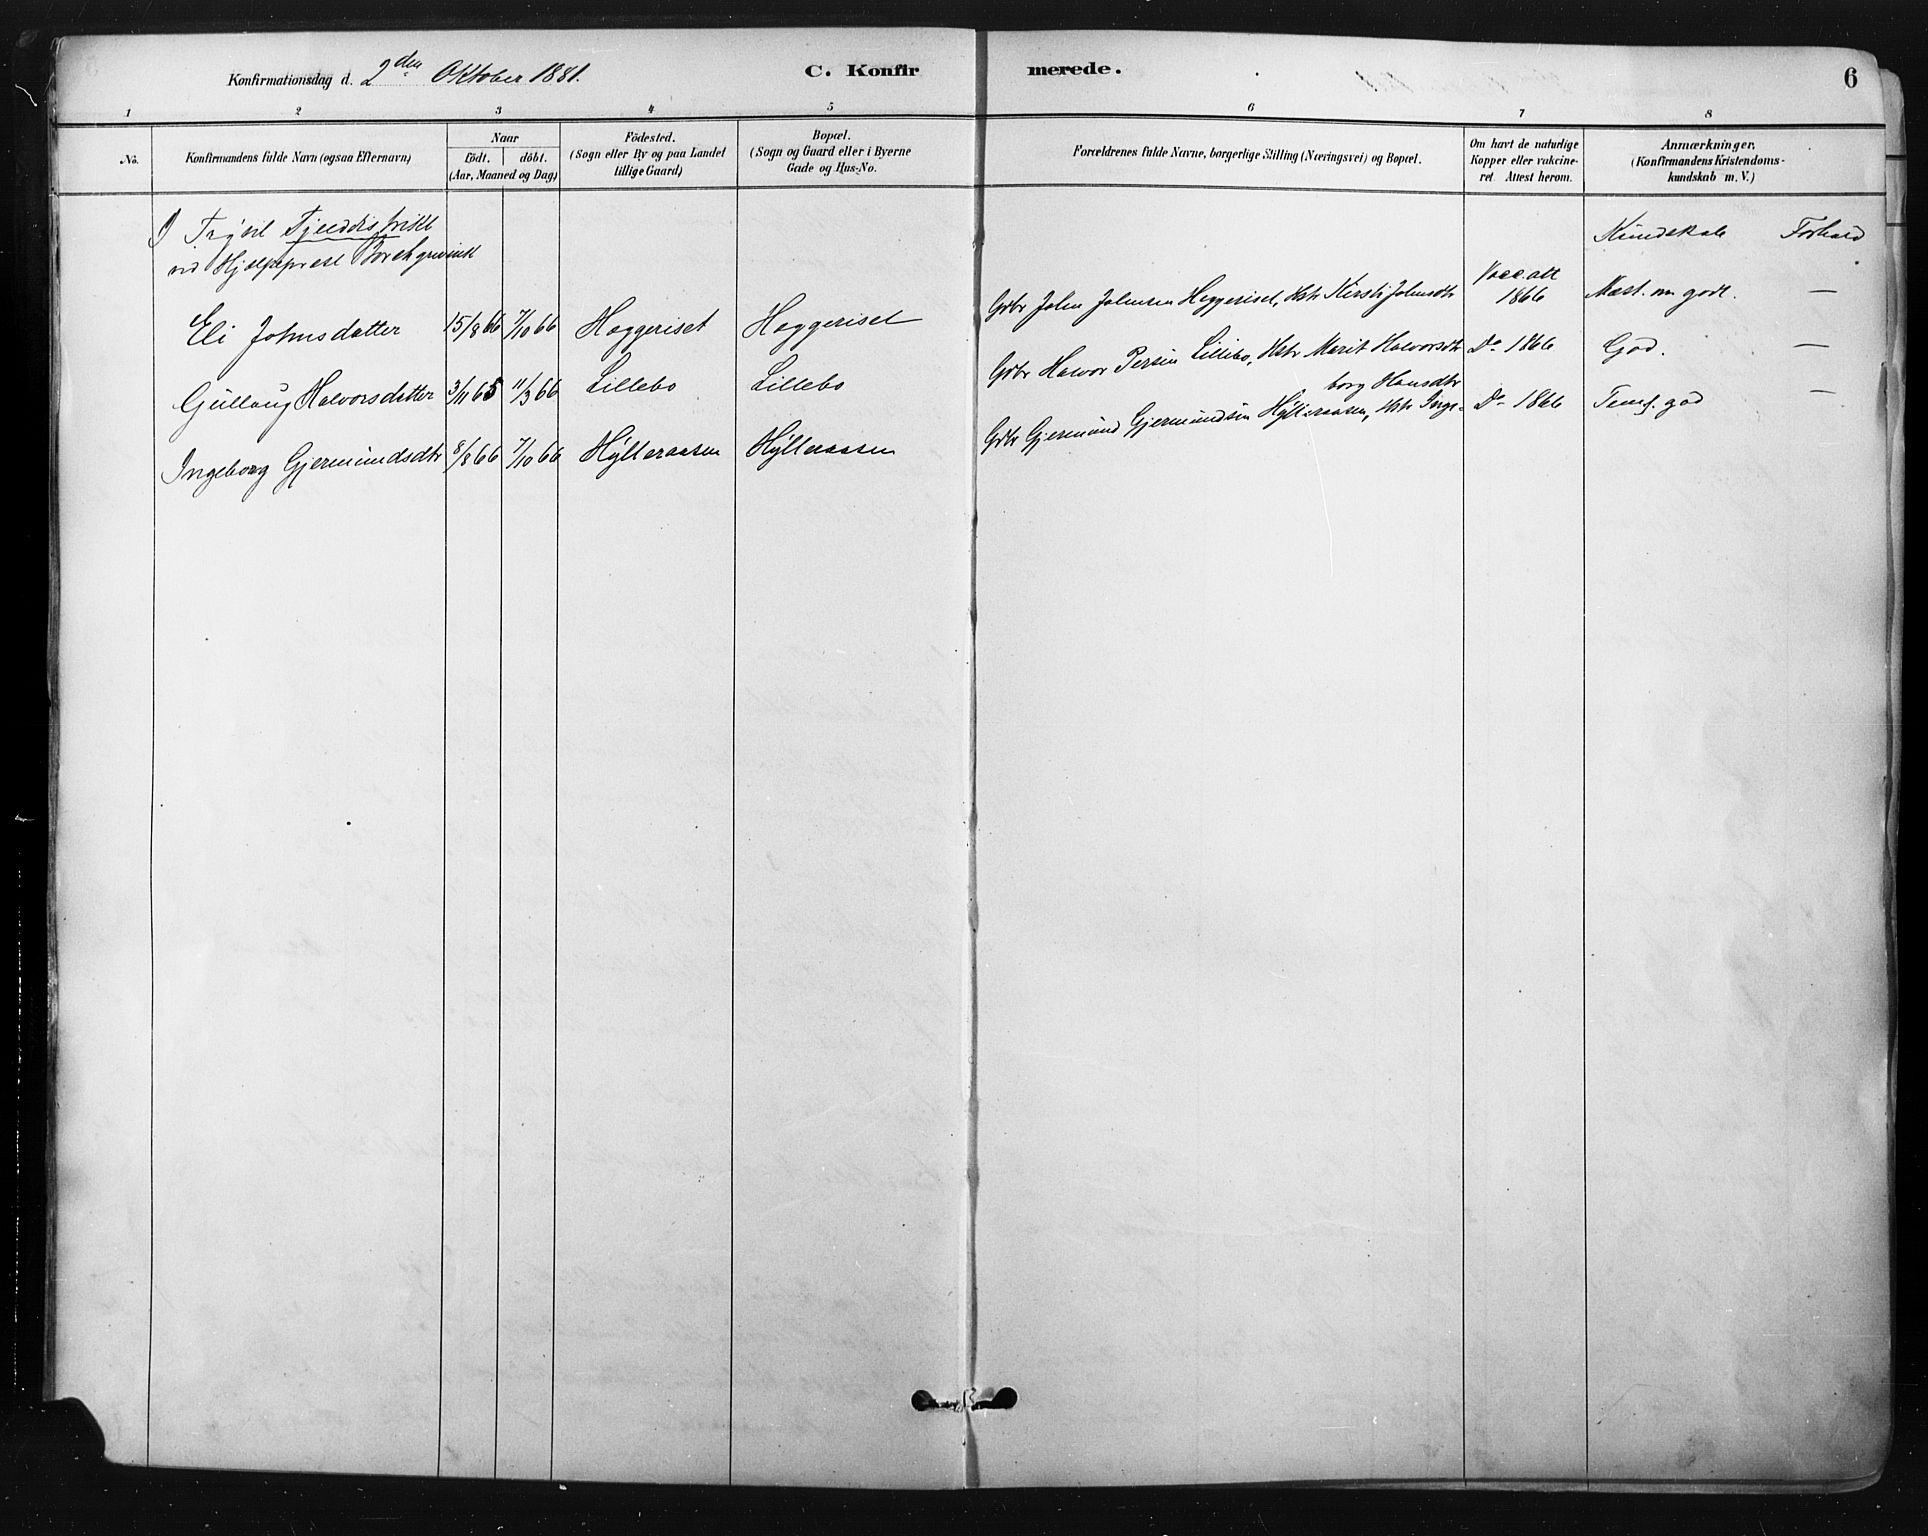 Konfirmationsdag d. 2den Oktober 1881.
C. Konfir merede.
6
1 2 3 4 5 6 7 8
No.
Konfirmandens fulde Navn (ogsaa Efternavn)
Naar
födt. döbt.
(Aar, Maaned og Dag)
Födested.
(Sogn eller By og paa Landet
tillige Gaard)
Bopæl.
(Sogn og Gaard eller i Byerne
Gade og Hus-No.
Forældrenes fulde Navne, borgerlige Stilling (Næringsvei) og Bopæl.
Om havt de naturlige
Kopper eller vakcine-
ret. Attest herom.
Anmærkninger.
(Konfirmandens Kristendoms-
kundskab m. V.)
I Trysil Fjelddistrikt
ved Hjelpeprest Borchgrevink
Kundskab Forhold
Eli Johnsdatter 15/8 66 7/10 66 Haggeriset Haggeriset Gdbr John Johnsen Heggeriset, Hstr Kirsti Johnsdtr Vacc. att 1866 Mæst. m. godt. —
Gullaug Halvorsdatter 3/11 65 11/3 66 Lillebo Lillebo Gdbr Halvor Persen Lillebo, Hstr Marit Halvorsdtr Do 1866 God. —
Ingeborg Gjermundsdtr 8/8 66 7/10 66 Hylleraasen Hylleraasen Gdbr Gjermund Gjermundsen Hylleraasen, Hstr Inge-
borg Hansdtr Do 1866 Teml. god —